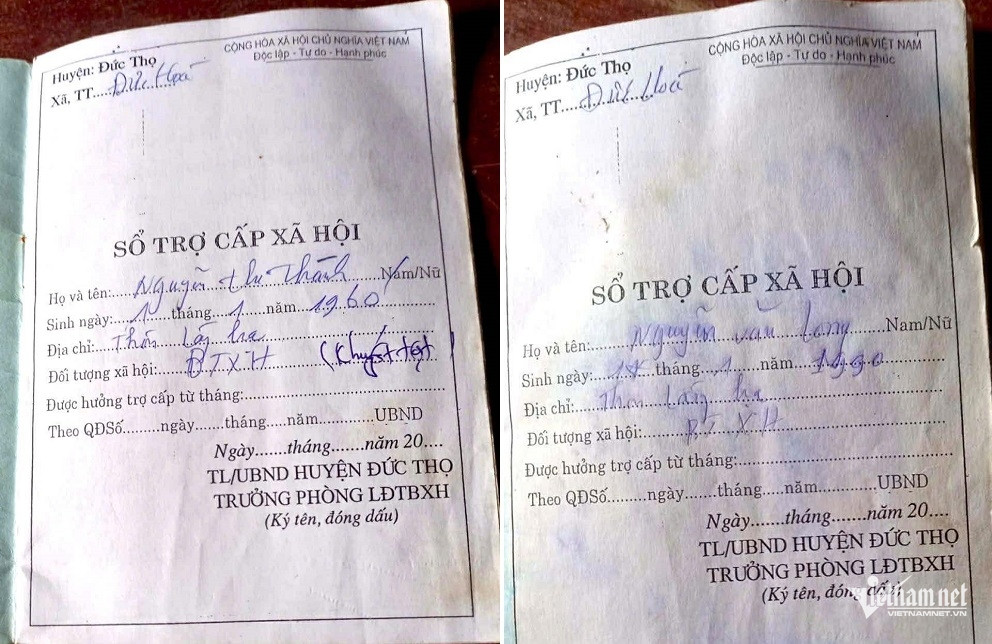 Huyện: Đức Thọ
CỘNG HÒA XÃ HỘI CHỦ NGHĨA VIỆT NAM
Độc lập - Tự do - Hạnh phúc
Xã, TT.....Đức Hoà
SỔ TRỢ CẤP XÃ HỘI
Họ và tên:.....Nguyễn thị Thành.....Nam/Nữ
Sinh ngày:.....1.....tháng.....1.....năm.....1960
Địa chỉ:.....Thôn
Đối tượng xã hội:.....BTXH (Khuyết tật)
Được hưởng trợ cấp từ tháng:
Theo QĐSố.........ngày.......tháng.....năm............UBND
Ngày.......tháng.......năm 20....
TL/UBND HUYỆN ĐỨC THỌ
TRƯỞNG PHÒNG LĐTBXH
(Ký tên, đóng dấu)
Huyện: Đức Thọ
CỘNG HÒA XÃ HỘI CHỦ NGHĨA VIỆT NAM
Độc lập - Tự do - Hạnh phúc
Xã, TT.....Đức Hoà
SỔ TRỢ CẤP XÃ HỘI
Họ và tên:.....Nguyễn văn Long.....Nam/Nữ
Sinh ngày:.....tháng.....1.....năm.....1990
Địa chỉ:.....Thôn
Đối tượng xã hội:.....BTXH
Được hưởng trợ cấp từ tháng:
Theo QĐSố.........ngày.......tháng.....năm............UBND
Ngày.......tháng.......năm 20....
TL/UBND HUYỆN ĐỨC THỌ
TRƯỞNG PHÒNG LĐTBXH
(Ký tên, đóng dấu)
Vietnamnet
VIETNAMNET.VN